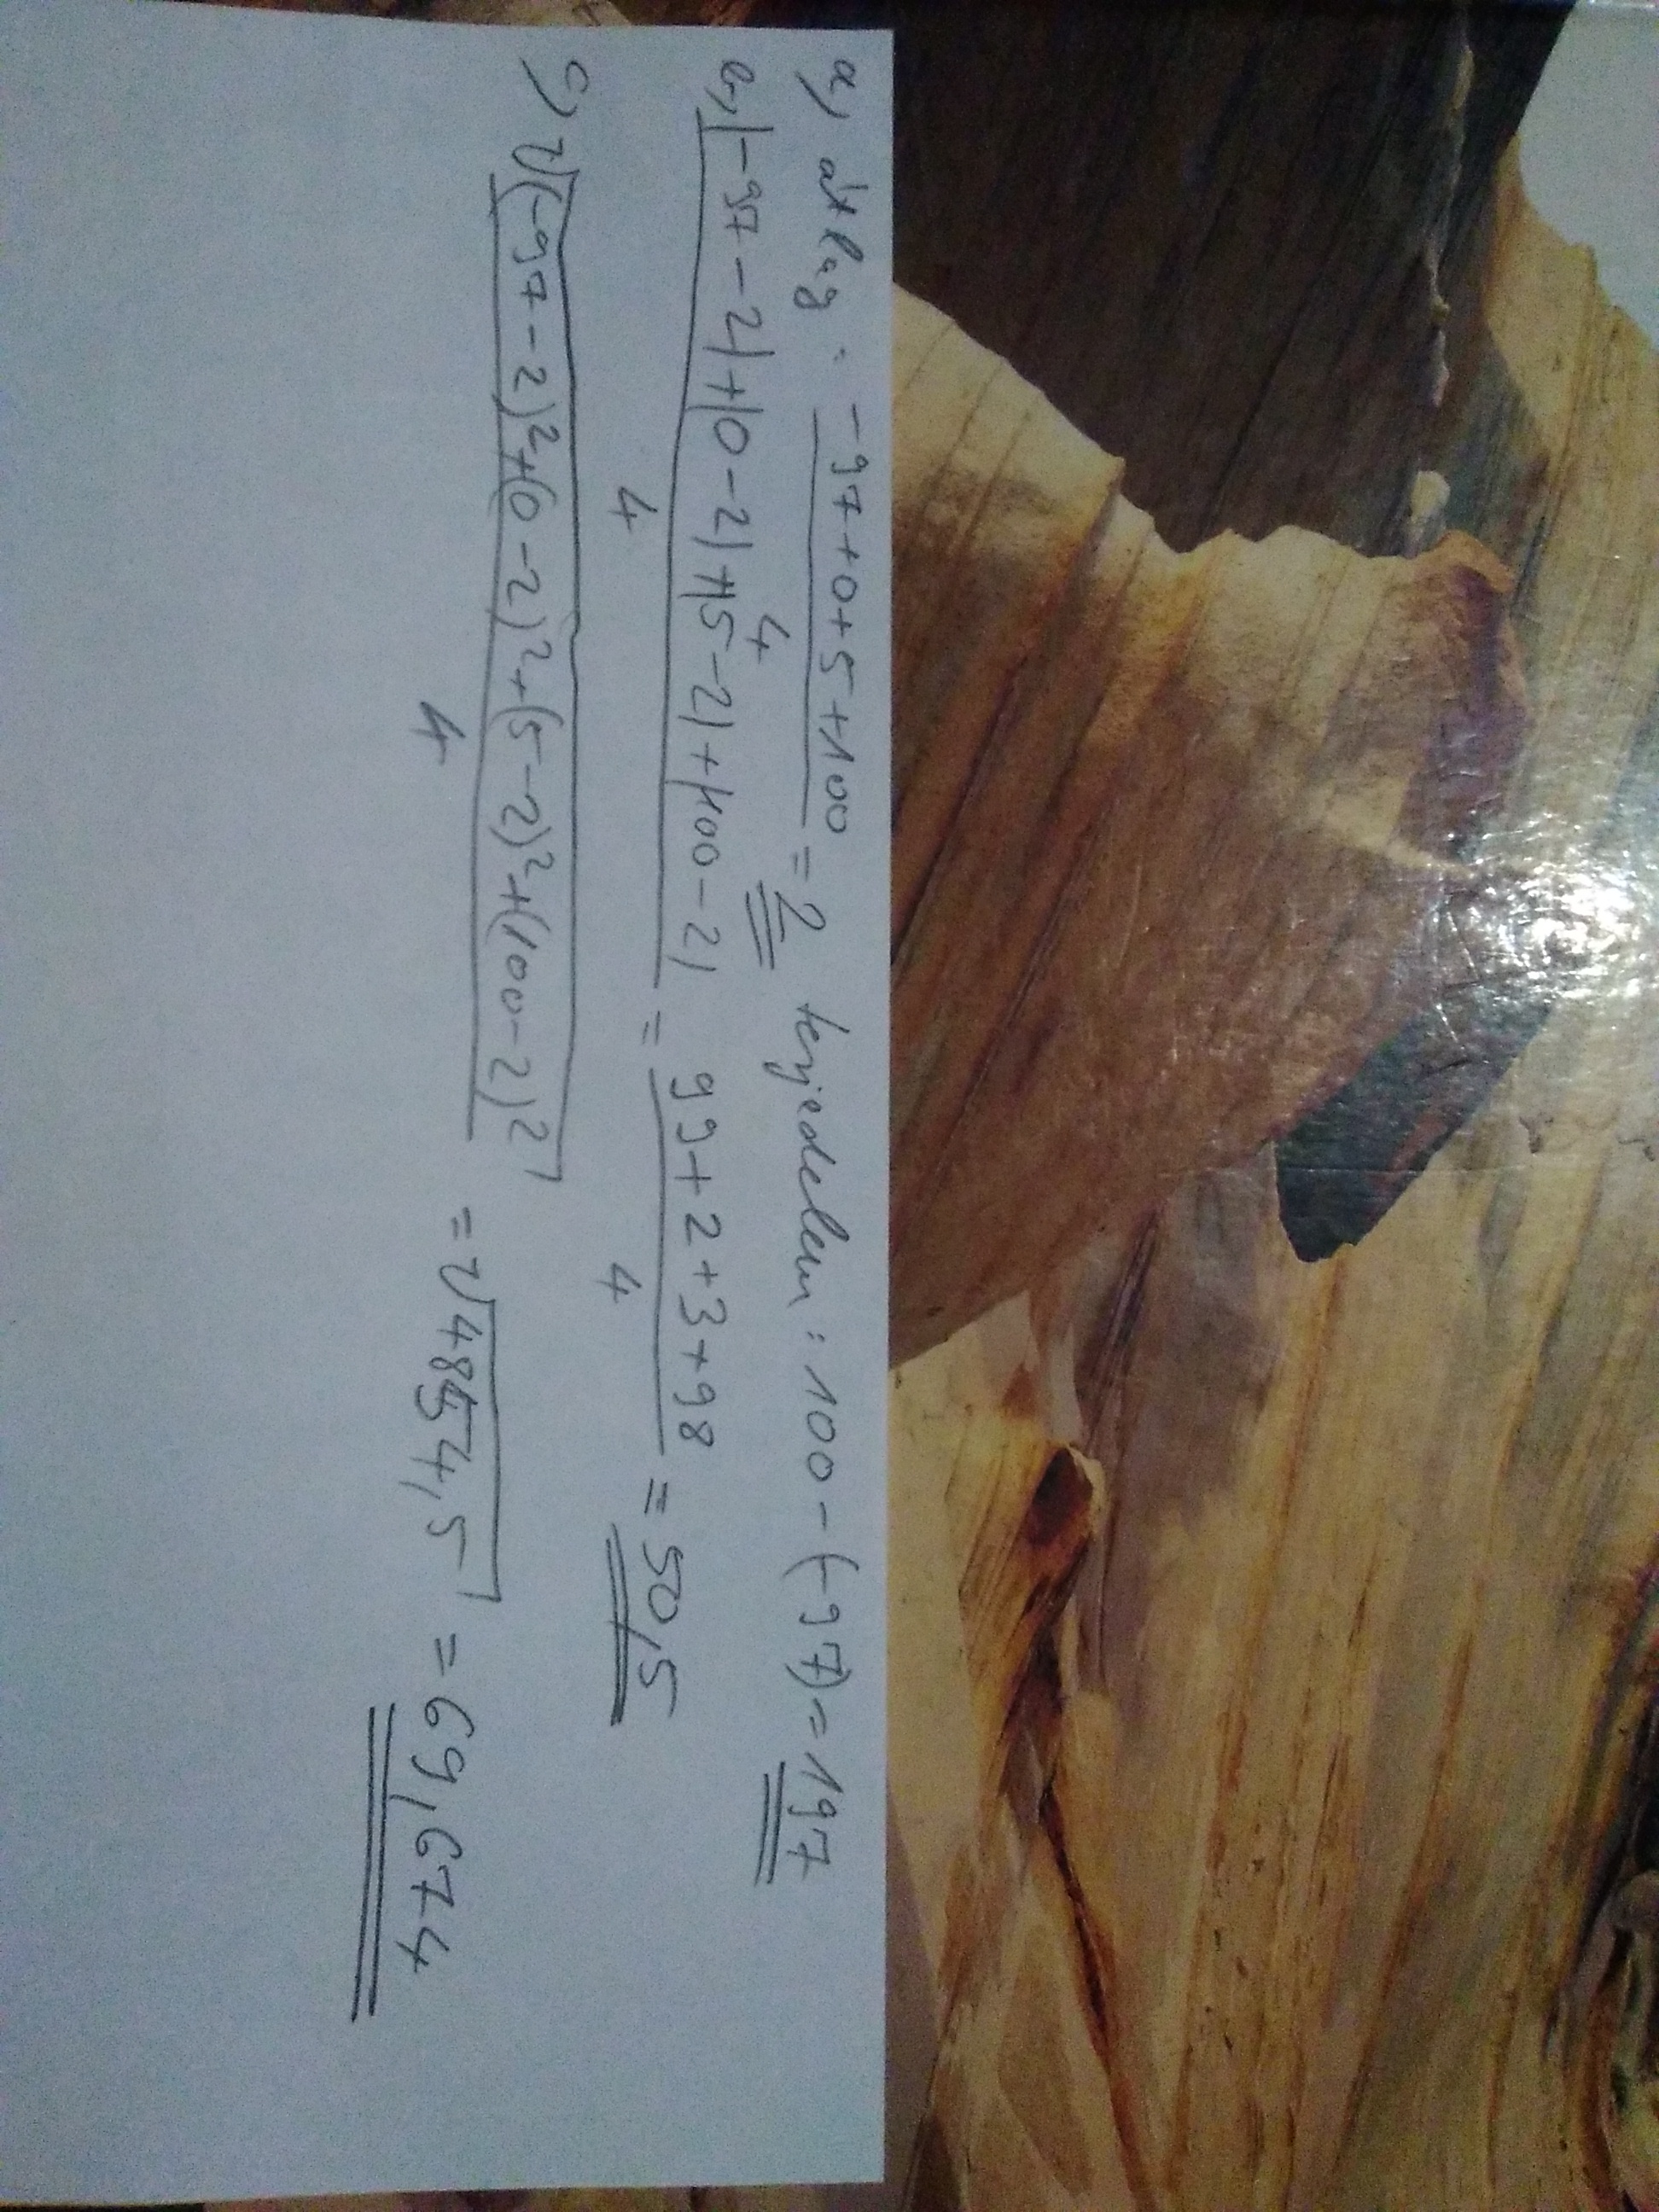 a, átlag: (-97+0+5+100)/4 = 2 terjedelem: 100-(-97) = 197
b, (|-97-2|+|0-2|+|5-2|+|100-2|)/4 = (99+2+3+98)/4 = 50,5
c) √((-97-2)²+(0-2)²+(5-2)²+(100-2)²)/4 = √4854,5 = 69,674